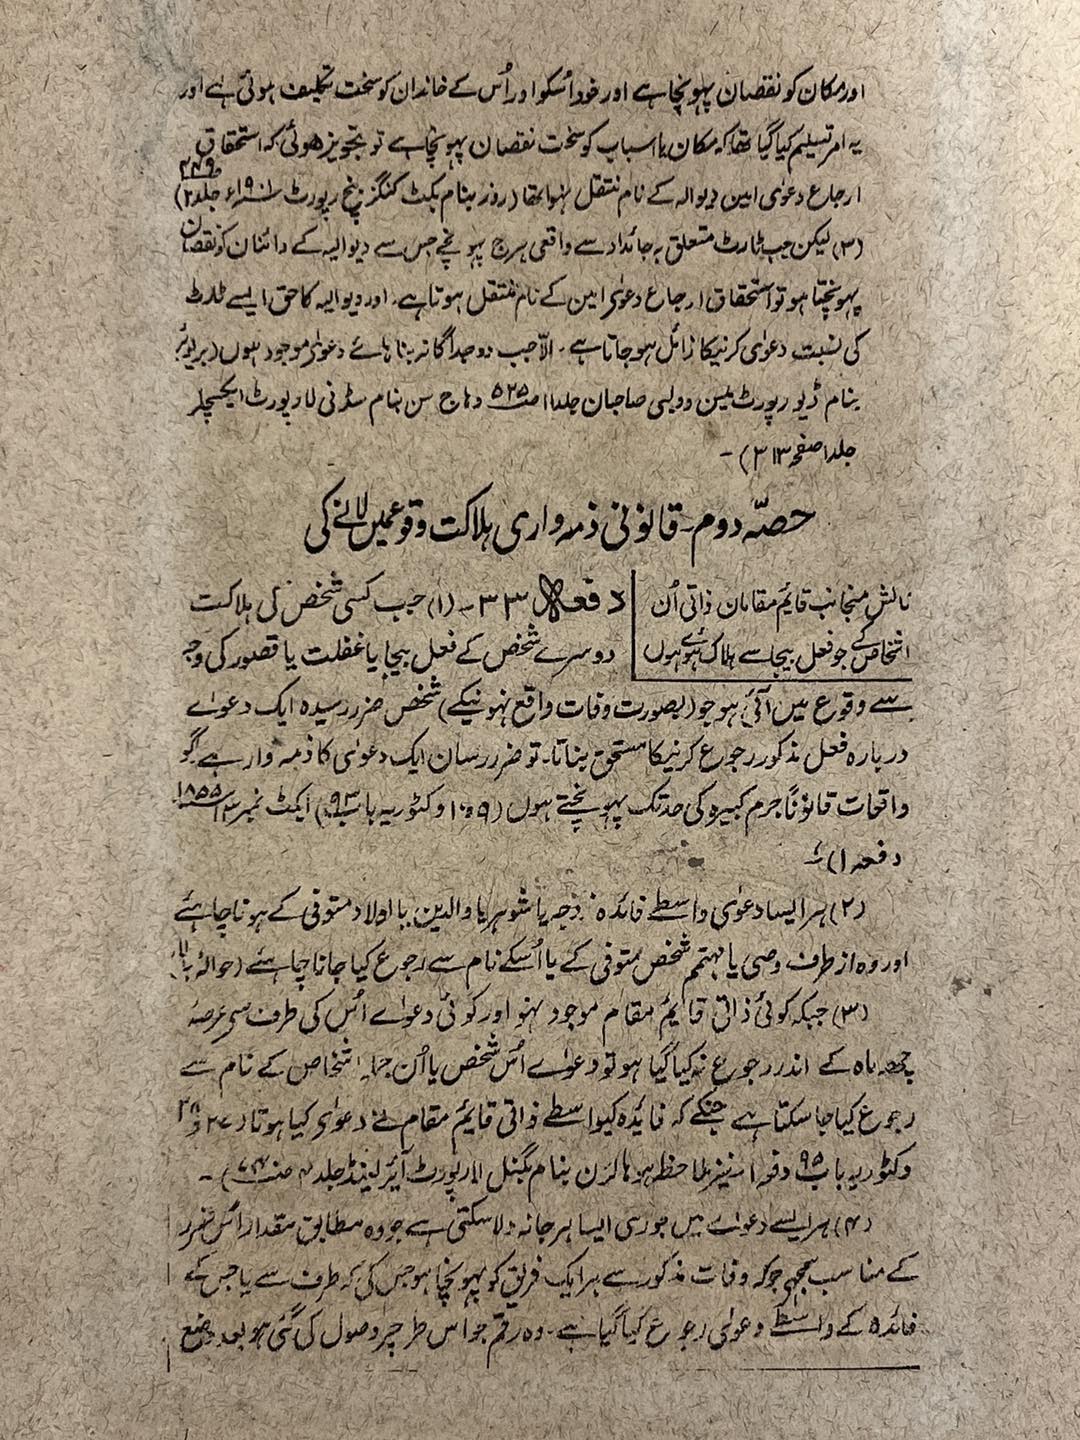 اور مکان کو نقصان پہونچا ہے اور خود اُسکو اور اُس کے خاندان کو سخت تکلیف ہوئی ہے اور
یہ امر تسلیم کیا گیا تھا کہ مکان یا اسباب کو سخت نقصان پہونچا ہے تو تجویز ہوئی کہ استحقاق
ارجاع دعوی امین دیوالہ کے نام منتقل نہوا تھا (روز بنام بکٹ کنگز بنچ رپورٹ سنہ ۱۹۰۱ء جلد ۲ ص ۴۴۹)
(۳) لیکن جب ٹارٹ متعلق بہ جائداد سے واقعی ہرج پہونچے جس سے دیوالیہ کے دائنان کو نقصان
پہونچتا ہو تو استحقاق ارجاع دعوی امین کے نام منتقل ہوتا ہے۔ اور دیوالیہ کا حق ایسے ٹارٹ
کی نسبت دعویٰ کرنیکا زائل ہو جاتا ہے۔ الّا جب دو جداگانہ بنا ہائے دعویٰ موجود ہوں (بریوئر
بنام ڈیو رپورٹ میسن وولسی صاحبان جلد ۱۱ ص ۶۲۵ و ہاج سن بنام سڈنی لا رپورٹ ایکسچکر
جلد ۱ صفحہ ۳۱۳)۔
حصّہ دوم۔ قانونی ذمہ واری ہلاکت وقوعمیں لانے کی
نالش منجانب قایم مقامان ذاتی اُن
اشخاص کے جو فعل بیجا سے ہلاک ہوئے ہوں
دفعہ ۳۳۔ (۱) جب کسی شخص کی ہلاکت
دوسرے شخص کے فعل بیجا یا غفلت یا قصور کی وجہ
سے وقوع میں آئی ہو جو (بصورت وفات واقع نہونیکے) شخص ضرر رسیدہ ایک دعوے
دربارہ فعل مذکور رجوع کرنیکا مستحق بناتا۔ تو ضرر رسان ایک دعویٰ کا ذمہ وار ہے گو
واقعات قانوناً جرم کبیرہ کی حد تک پہونچتے ہوں (۹ و ۱۰ وکٹوریہ باب ۹۳) ایکٹ نمبر ۱۳ سنہ ۱۸۵۵ء
دفعہ ۱)
(۲) ہر ایسا دعویٰ واسطے فائدہ زوجہ یا شوہر یا والدین یا اولاد متوفی کے ہونا چاہئے
اور وہ از طرف وصی یا مہتمم شخص متوفی کے یا اُسکے نام سے رجوع کیا جانا چاہئے (حوالہ بالا)
(۳) جبکہ کوئی ذاتی قایم مقام موجود نہو اور کوئی دعوے اُس کی طرف سے عرصہ
چھہ ماہ کے اندر رجوع نہ کیا گیا ہو تو دعوے اُس شخص یا اُن جملہ اشخاص کے نام سے
رجوع کیا جا سکتا ہے جنکے کہ فایدہ کیواسطے ذاتی قایم مقام نے دعویٰ کیا ہوتا (۲۷ و ۲۸
وکٹوریہ باب ۹۵ دفعہ ۱ نیز ملاحظہ ہو ہالرن بنام بگنل لا رپورٹ آئرلینڈ جلد ۴ ص ۷۴۰)۔
(۴) ہر ایسے دعوے میں جوری ایسا ہرجانہ دلا سکتی ہے جو وہ مطابق مقدار اُس ضرر
کے مناسب سمجھے جو کہ وفات مذکور سے ہر ایک فریق کو پہونچا ہو جس کی کہ طرف سے یا جس کے
فائدہ کے واسطے دعویٰ رجوع کیا گیا ہے۔ وہ رقم جو اس طرح پر وصول کی گئی ہو بعد وضع